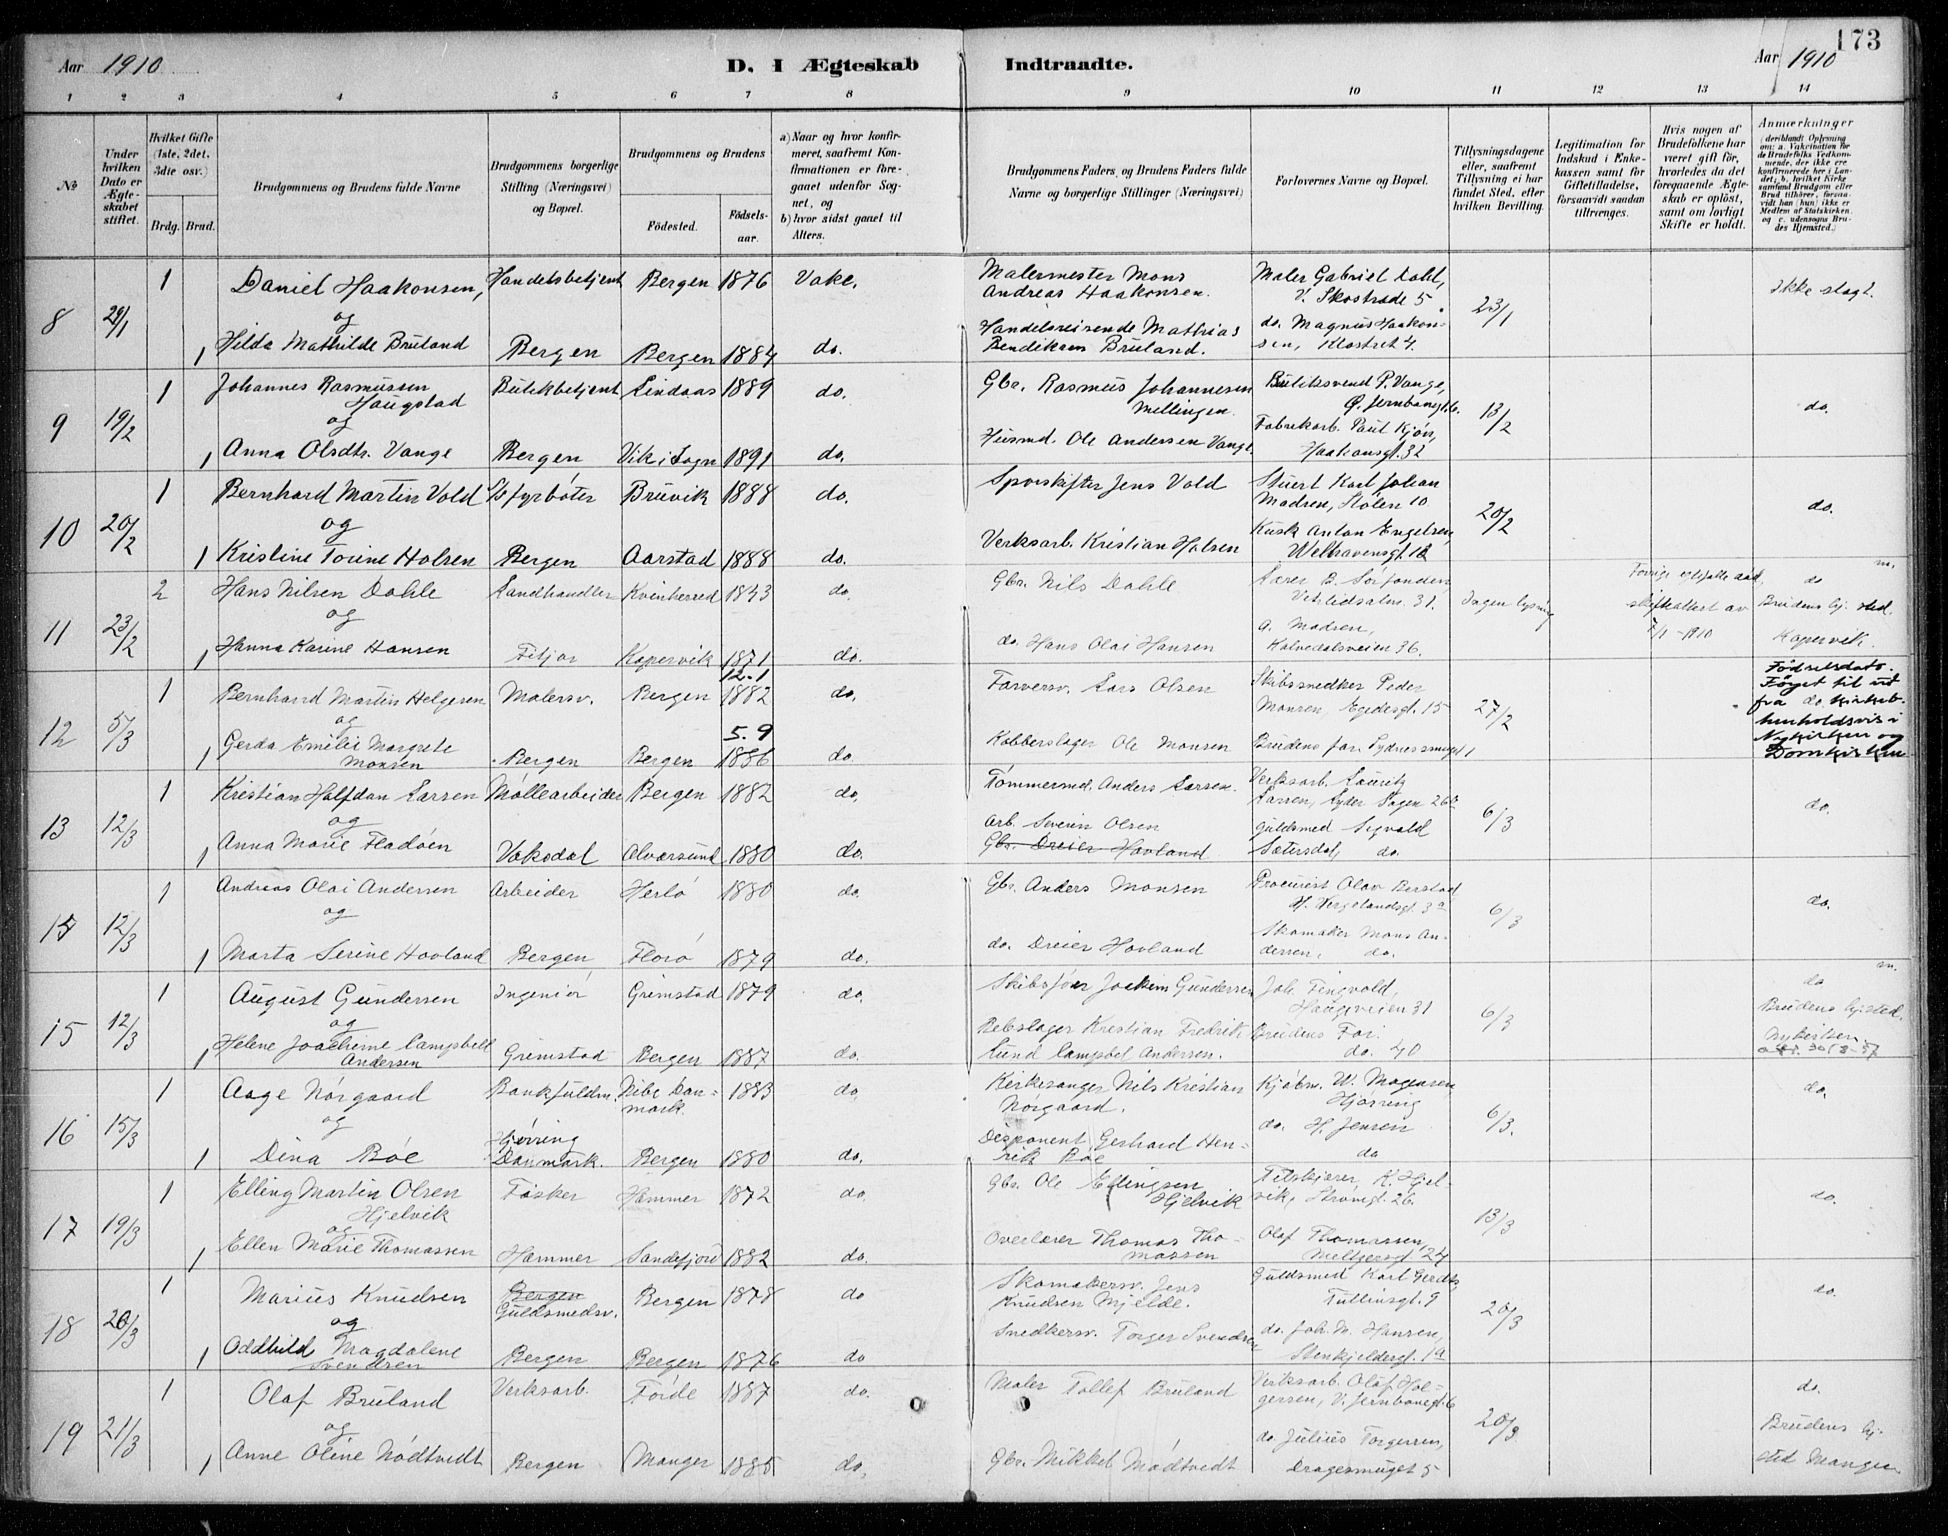 173
Aar 1910
D. I Ægteskab
Indtraadte.
Aar 1910
1 2 3 4 5 6 7 8 9 10 11 12 13 14
№
Under hvilken Dato er Ægteskabet stiftet.
Hvilket Gifte (1ste, 2det, 3die osv.)
Brdg. Brud.
Brudgommens og Brudens fulde Navne
Brudgommens borgerlige Stilling (Næringsvei) og Bopæl.
Brudgommens og Brudens
Fødested.
Fødselsaar.
a) Naar og hvor konfirmeret, saafremt Konfirmationen er foregaaet udenfor Sognet, og
b) hvor sidst gaaet til Alters.
Brudgommens Faders, og Brudens Faders fulde Navne og borgerlige Stillinger (Næringsvei)
Forlovernes Navne og Bopæl.
Tillysningsdagene eller, saafremt Tillysning ei har fundet Sted, efter hvilken Bevilling.
Legitimation for Indskud i Enkekassen samt for Giftetilladelse, forsaavidt saadan tiltrænges.
Hvis nogen af Brudefolkene har været gift før, hvorledes da det foregaaende Ægteskab er opløst, samt om lovligt Skifte er holdt.
Anmærkninger (deriblandt Oplysning om: a. Vakcination for de Brudefolks Vedkommende, der ikke ere konfirmerede her i Landet; b. hvilket Kirkesamfund Brudgom eller Brud tilhører, forsaavidt han (hun) ikke er Medlem af Statskirken, og c. udensogns Brudes Hjemsted.)
8 29/1 1 Daniel Haakonsen, Handelsbetjent Bergen 1876 Vake. Malermester Mons Andreas Haakonsen. Maler Gabriel Dahl, V. Skostrade 5 23/1 Ikke slagt.
og
1 Hilda Mathilde Bruland Bergen Bergen 1884 do. Handelsreisende Mathias Bendiksen Bruland. do. Magnus Haakonsen, Klostret 4.
9 19/2 1 Johannes Rasmussen Haugstad Butikbetjent Lindaas 1889 do. Gbr. Rasmus Johannesen Mellingen. Butiksvend P. Vange, G. Jernbanegt. 6. 13/2 do.
og
1 Anna Olsdtr. Vange Bergen Vik i Sogn 1891 do. Husmd. Ole Andersen Vange. Fabrikarb. Paul Kjøn, Haakonsgt. 32
10 20/2 1 Bernhard Martin Vold Sbfyrbøter Bruvik 1888 do. Sporskifter Jens Vold Stuert Karl Johan Madsen, Stølen 10 20/2 do.
og
1 Kristine Torine Holsen Bergen Aarstad 1888 do. Verksarb. Kristian Holsen Kusk Anton Engelsen, Welhavensgt. 12
11 23/2 2 Hans Nilsen Dahle Landhandler Kvinherred 1843 do. Gbr. Nils Dahle Lærer B. Sørfonden, Vetrlidsalm. 31. Ingen lysning Forrige egtefælle død, skifteattest av 7/1-1910 do Brudens hj. sted. Kopervik.
og
1 Hanna Karine Hansen Fitjar Kopervik 1871 do. do. Hans Olai Hansen A. Madsen, Kalvedalsveien 36.
12 5/3 1 Bernhard Martin Helgesen Malersv. Bergen 12.1 1882 do. Farversv. Lars Olsen Skibssnedker Peder Monsen, Egedesgt. 15 27/2 Fødselsdato. Føyet til ut fra do kirkeb. henholdsvis i Nykirken og Domkirken
og
1 Gerda Emilie Margrete Monsen Bergen Bergen 5.9 1886 do. Kobberslager Ole Monsen Brudens far, Sydnessmuget 1
13 12/3 1 Kristian Halfdan Larsen Møllearbeider Bergen 1882 do. Tømmermd. Anders Larsen. Verksarb. Lauritz Larsen, Lyder Sagen 26b 6/3 do.
og
1 Anna Marie Fladøen Vaksdal Alversund 1880 do. Arb. Severin Olsen Gbr. Dreier Hovland Guldsmed Sigvald Sætersdal, do.
14 12/3 1 Andreas Olai Andersen Arbeider Herlø 1880 do. Gbr. Anders Monsen Procurist Olav Berstad H. Vergelandsgt. 3a 6/3 do.
og
1 Marta Serine Hovland Bergen Florø 1879 do. do. Dreier Hovland Skomaker Mons Andersen, do.
15 12/3 1 August Gundersen Ingeniør Grimstad 1879 do. Skibsfører Joakim Gundersen Joh. Tingvold, Haugeveien 31 6/3 do Brudens hj.sted. Nykirken
og
1 Helene Joachime Campbell Andersen Grimstad Bergen 1887 do. Rebslager Kristian Fredrik Lund Campbel Andersen. Brudens Far. do. 40
16 15/3 1 Aage Nørgaard Bankfuldm. Nibe Danmark. 1883 do. Kirkesanger Nils Kristian Nørgaard. Kjøbm. W. Mogensen, Hjørring 6/3. do.
og
1 Dina Bøe Hjørring Danmark. Bergen 1880 do. Disponent Gerhard Henrik Bøe do. H. Jensen do
17 19/3 1 Elling Martin Olsen Hjelvik Fisker Hammer 1872 do. Gbr. Ole Ellingsen Hjelvik Tilskjærer, K. Hjelvik, Strømgt. 26. 13/3 do.
og
1 Ellen Marie Thomassen Hammer Sandefjord 1882 do. Overlærer Thomas Thomassen Olaf Thomassen, Meltzersgt. 24
18 20/3 1 Marius Knudsen Bergen Guldsmedsv. Bergen 1878 do Skomakersv. Jens Knudsen Mjelde. Guldsmed Karl Gerdts, Tullinsgt. 9 20/3 do.
og
1 Oddhild Magdalene Svendsen Bergen Bergen 1876 do Snedkersv. Torger Svendsen do. Joh. M. Hansen, Stenkjeldergt. 1a
19 21/3 1 Olaf Bruland Verksarb. Førde 1887 do. Maler Tollef Bruland Verksarb. Olaf Holgersen, V. Jernbanegt. 6 20/3 do. Brudens hj. sted Manger
og
1 Anne Oline Nødtvedt Bergen Manger 1885 do. Gbr. Mikkel Nødtvedt do. Julius Torgersen, Dragesmuget 5